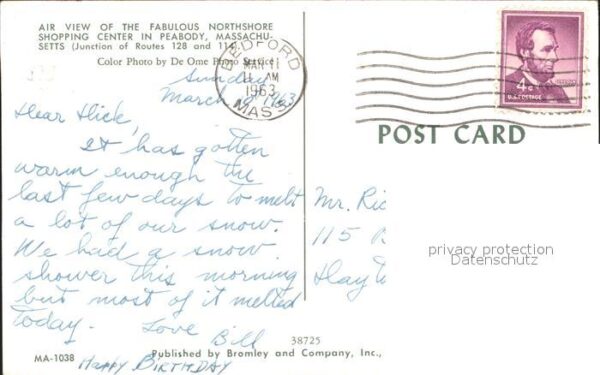 AIR VIEW OF THE FABULOUS NORTHSHORE
SHOPPING CENTER IN PEABODY, MASSACHU-
SETTS (Junction of Routes 128 and 114).
Color Photo by De Ome Photo Service
BEDFORD
MAR 11
11 AM
1963
MASS
4¢
U.S. POSTAGE
POST CARD
Sunday
March 1963
Dear Dick,
It has gotten
warm enough the
last few days to melt
a lot of our snow.
We had a snow
shower this morning
but most of it melted
today.
Love
Bill
Happy BIRTHDAY
Mr. Ric
115
Dayt
privacy protection
Datenschutz
38725
MA-1038
Published by Bromley and Company, Inc.,